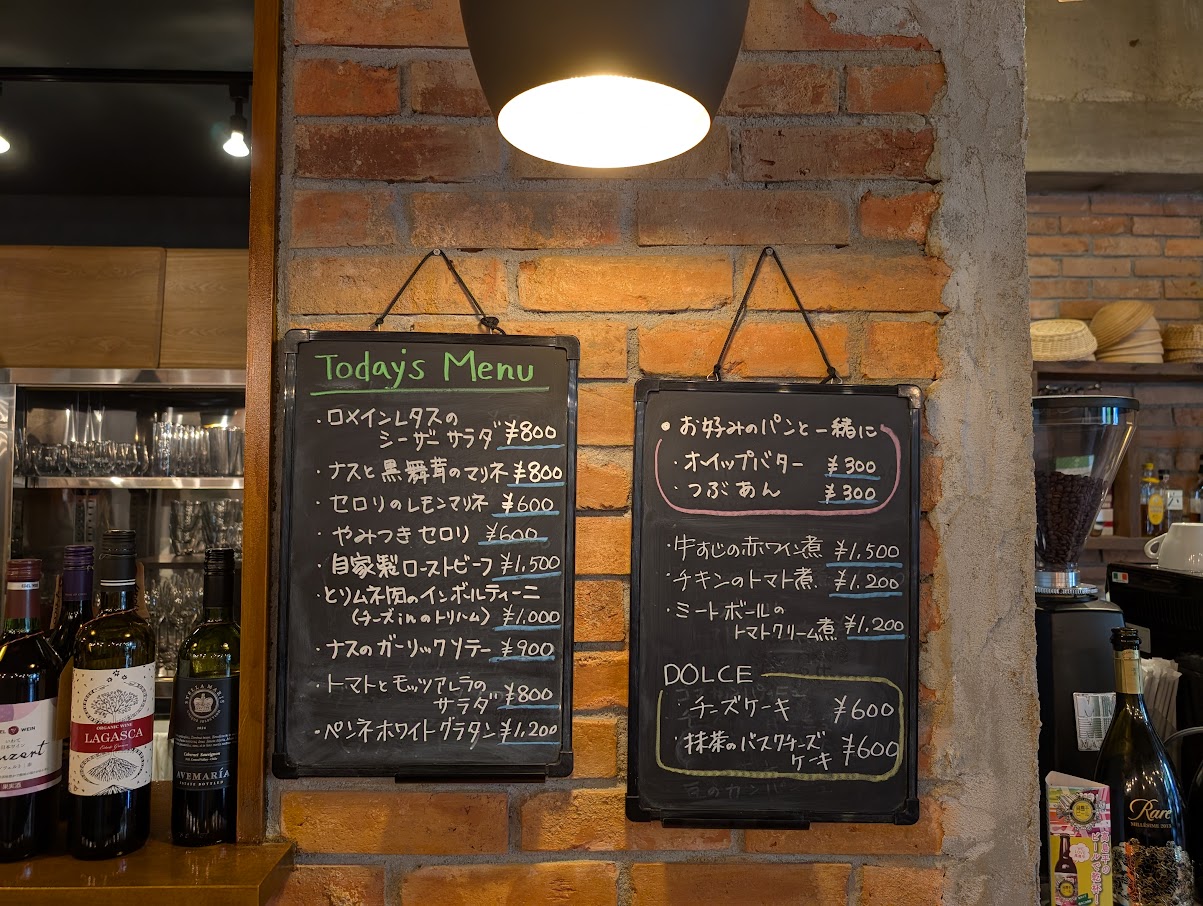 Today's Menu
・ロメインレタスの
シーザーサラダ ¥800
・ナスと黒舞茸のマリネ ¥800
・セロリのレモンマリネ ¥600
・やみつきセロリ ¥600
・自家製ローストビーフ ¥1,500
・とりムネ肉のインボルティーニ
(チーズinのトリハム) ¥1,000
・ナスのガーリックソテー ¥900
・トマトとモッツアレラの
サラダ ¥800
・ペンネホワイトグラタン ¥1,200
● お好みのパンと一緒に
・ホイップバター ¥300
・つぶあん ¥300
・牛すじの赤ワイン煮 ¥1,500
・チキンのトマト煮 ¥1,200
・ミートボールの
トマトクリーム煮 ¥1,200
DOLCE
・チーズケーキ ¥600
・抹茶のバスクチーズ
ケーキ ¥600
WEIN
日本ワイン
果実酒
ORGANIC WINE
LAGASCA
STELLA MARIS
Cabernet Sauvignon
AVEMARÍA
ESTATE BOTTLED
Rare
MILLÉSIME 2013